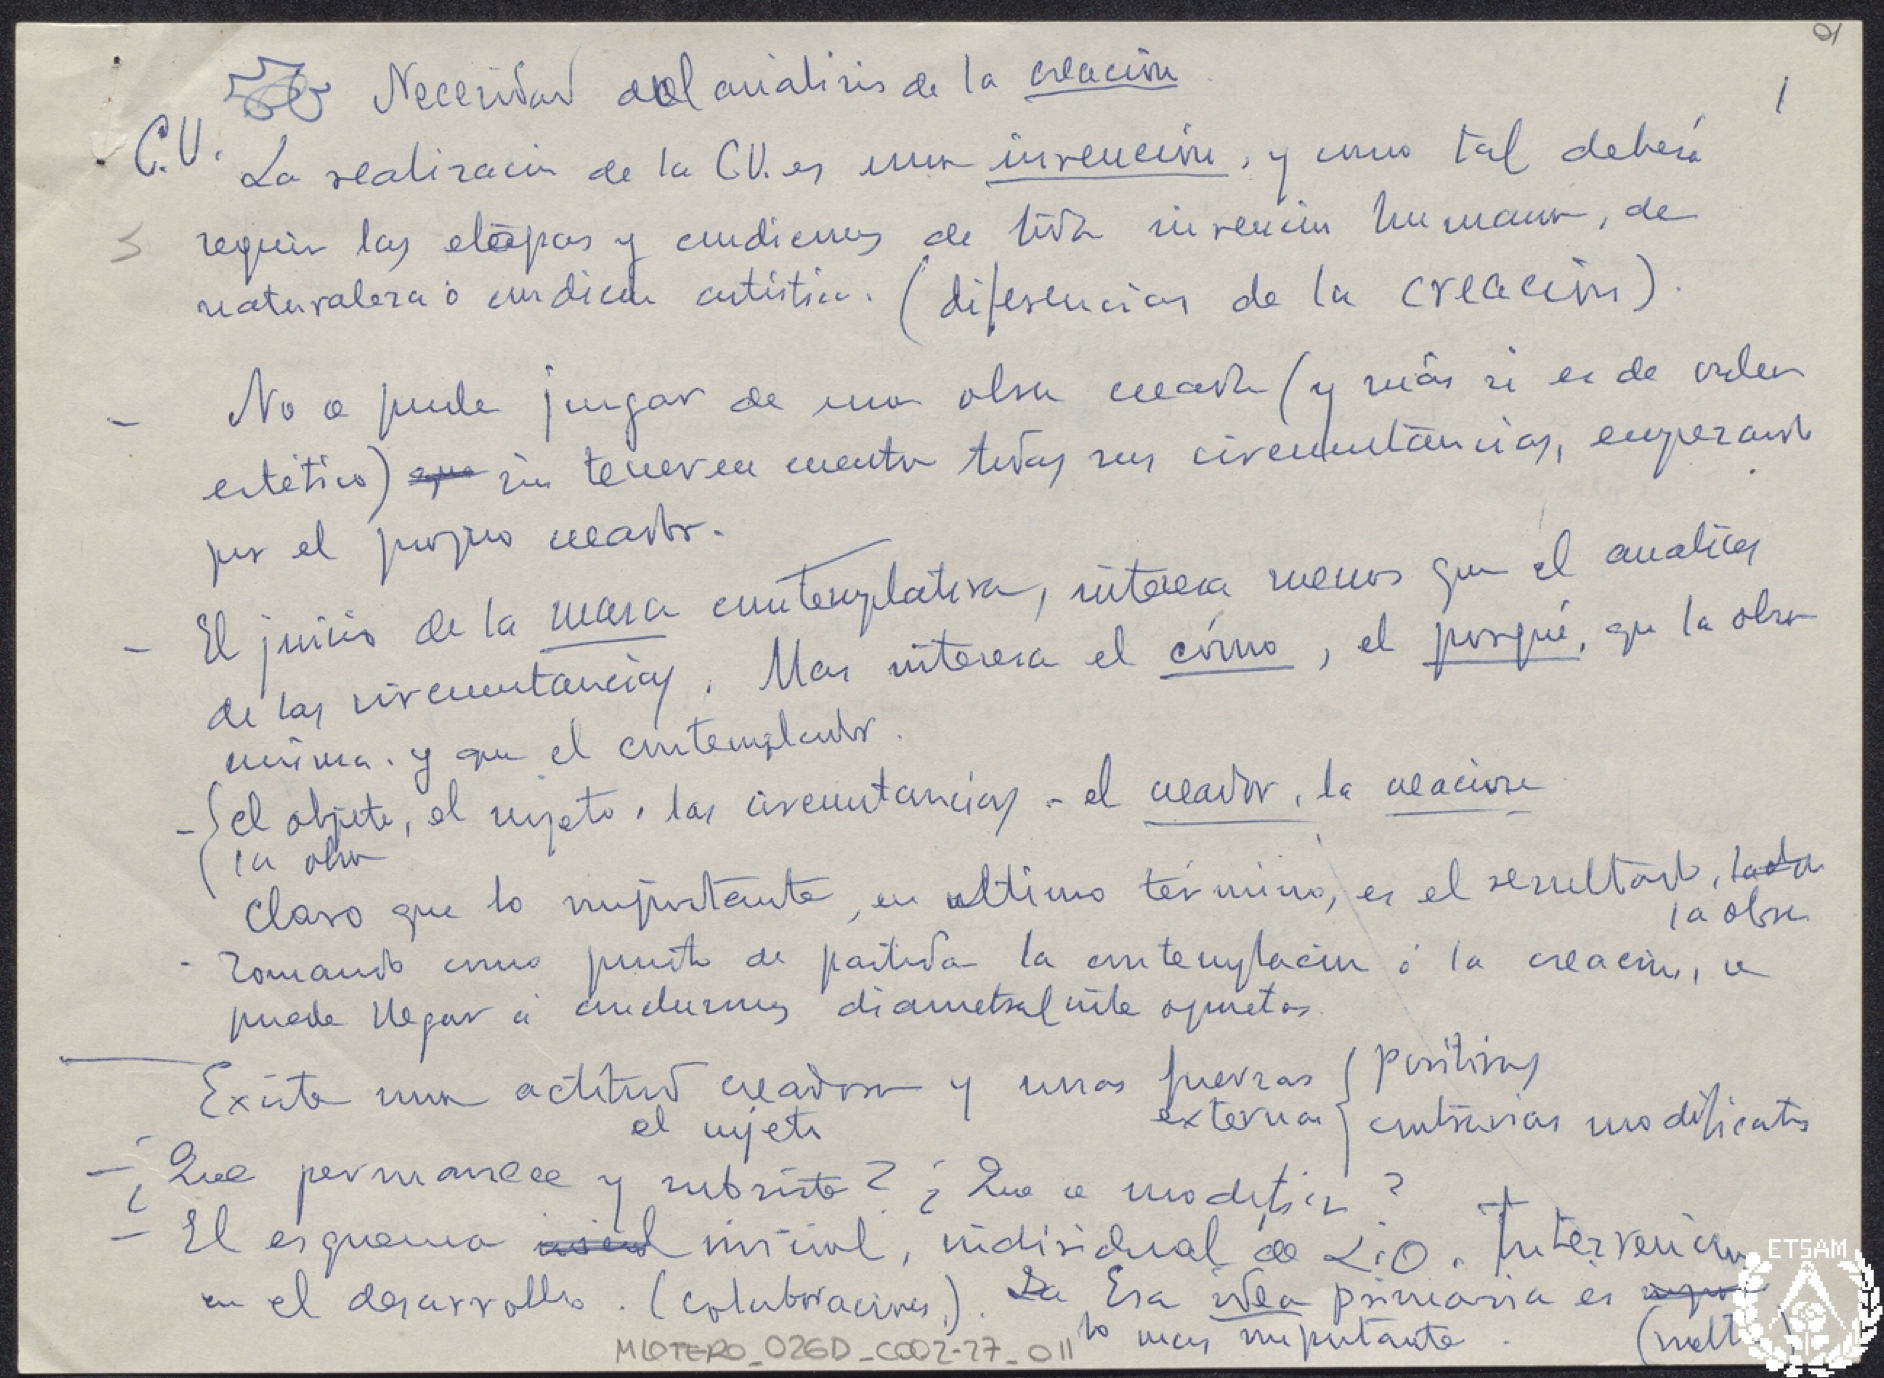 01
Necesidad del análisis de la creación
1
C.U. La realización de la C.U. es una invención, y como tal deberá
3
seguir las etapas y condiciones de toda invención humana, de
naturaleza o condición artística. (diferencias de la creación).
- No se puede juzgar de una obra creada (y más si es de orden
estético) que sin tener en cuenta todas sus circunstancias, empezando
por el propio creador.
- El juicio de la masa contemplativa, interesa menos que el análisis
de las circunstancias. Mas interesa el cómo, el porqué, que la obra
misma. y que el contemplador.
- { el objeto, el sujeto, las circunstancias - el creador, la creación
la obra
Claro que lo importante, en ultimo término, es el resultado,
la obra
- Tomando como punto de partida la contemplación ó la creación, se
puede llegar a conclusiones diametralmente opuestas.
Existe una actitud creadora y unas fuerzas { positivas
el sujeto externas { contrarias modificatos
- ¿Que permanece y subsiste? ¿Que se modifica?
- El esquema inicial, individual de L.O. Intervención
en el desarrollo. (colaboraciones). La Esa idea primaria es
lo mas importante.
MLOTERO_026D_C002-27_011
ETSAM